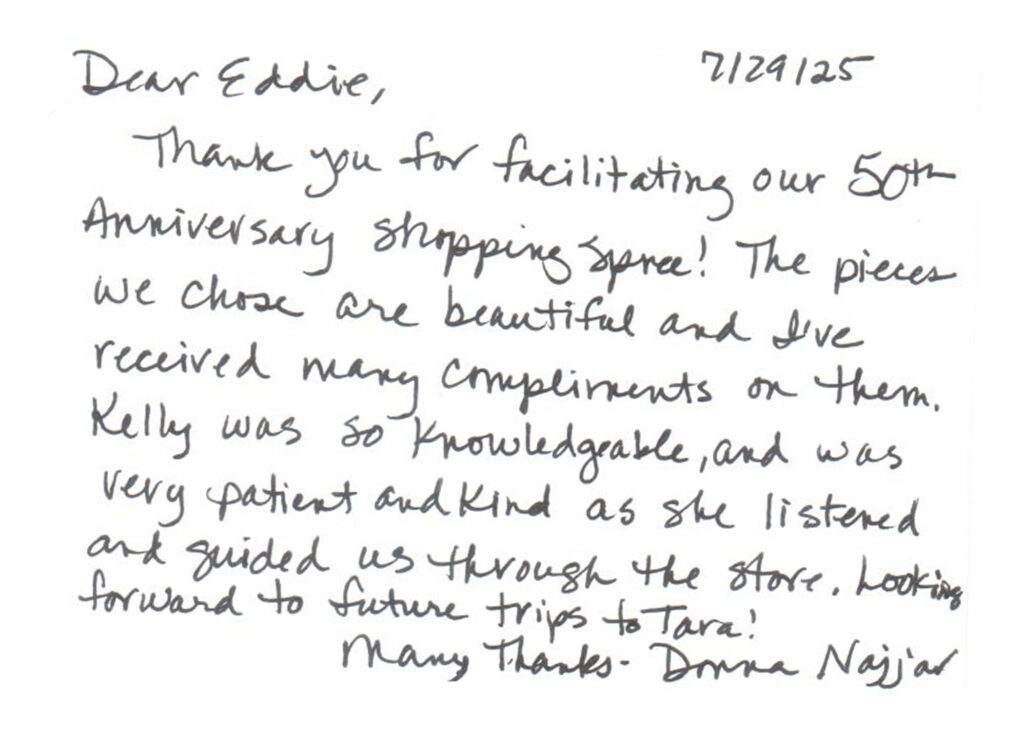 Dear Eddie, 7/29/25
Thank you for facilitating our 50th
Anniversary shopping spree! The pieces
we chose are beautiful and I've
received many compliments on them.
Kelly was so knowledgeable, and was
very patient and kind as she listened
and guided us through the store. Looking
forward to future trips to Tara!
Many Thanks- Donna Najjar